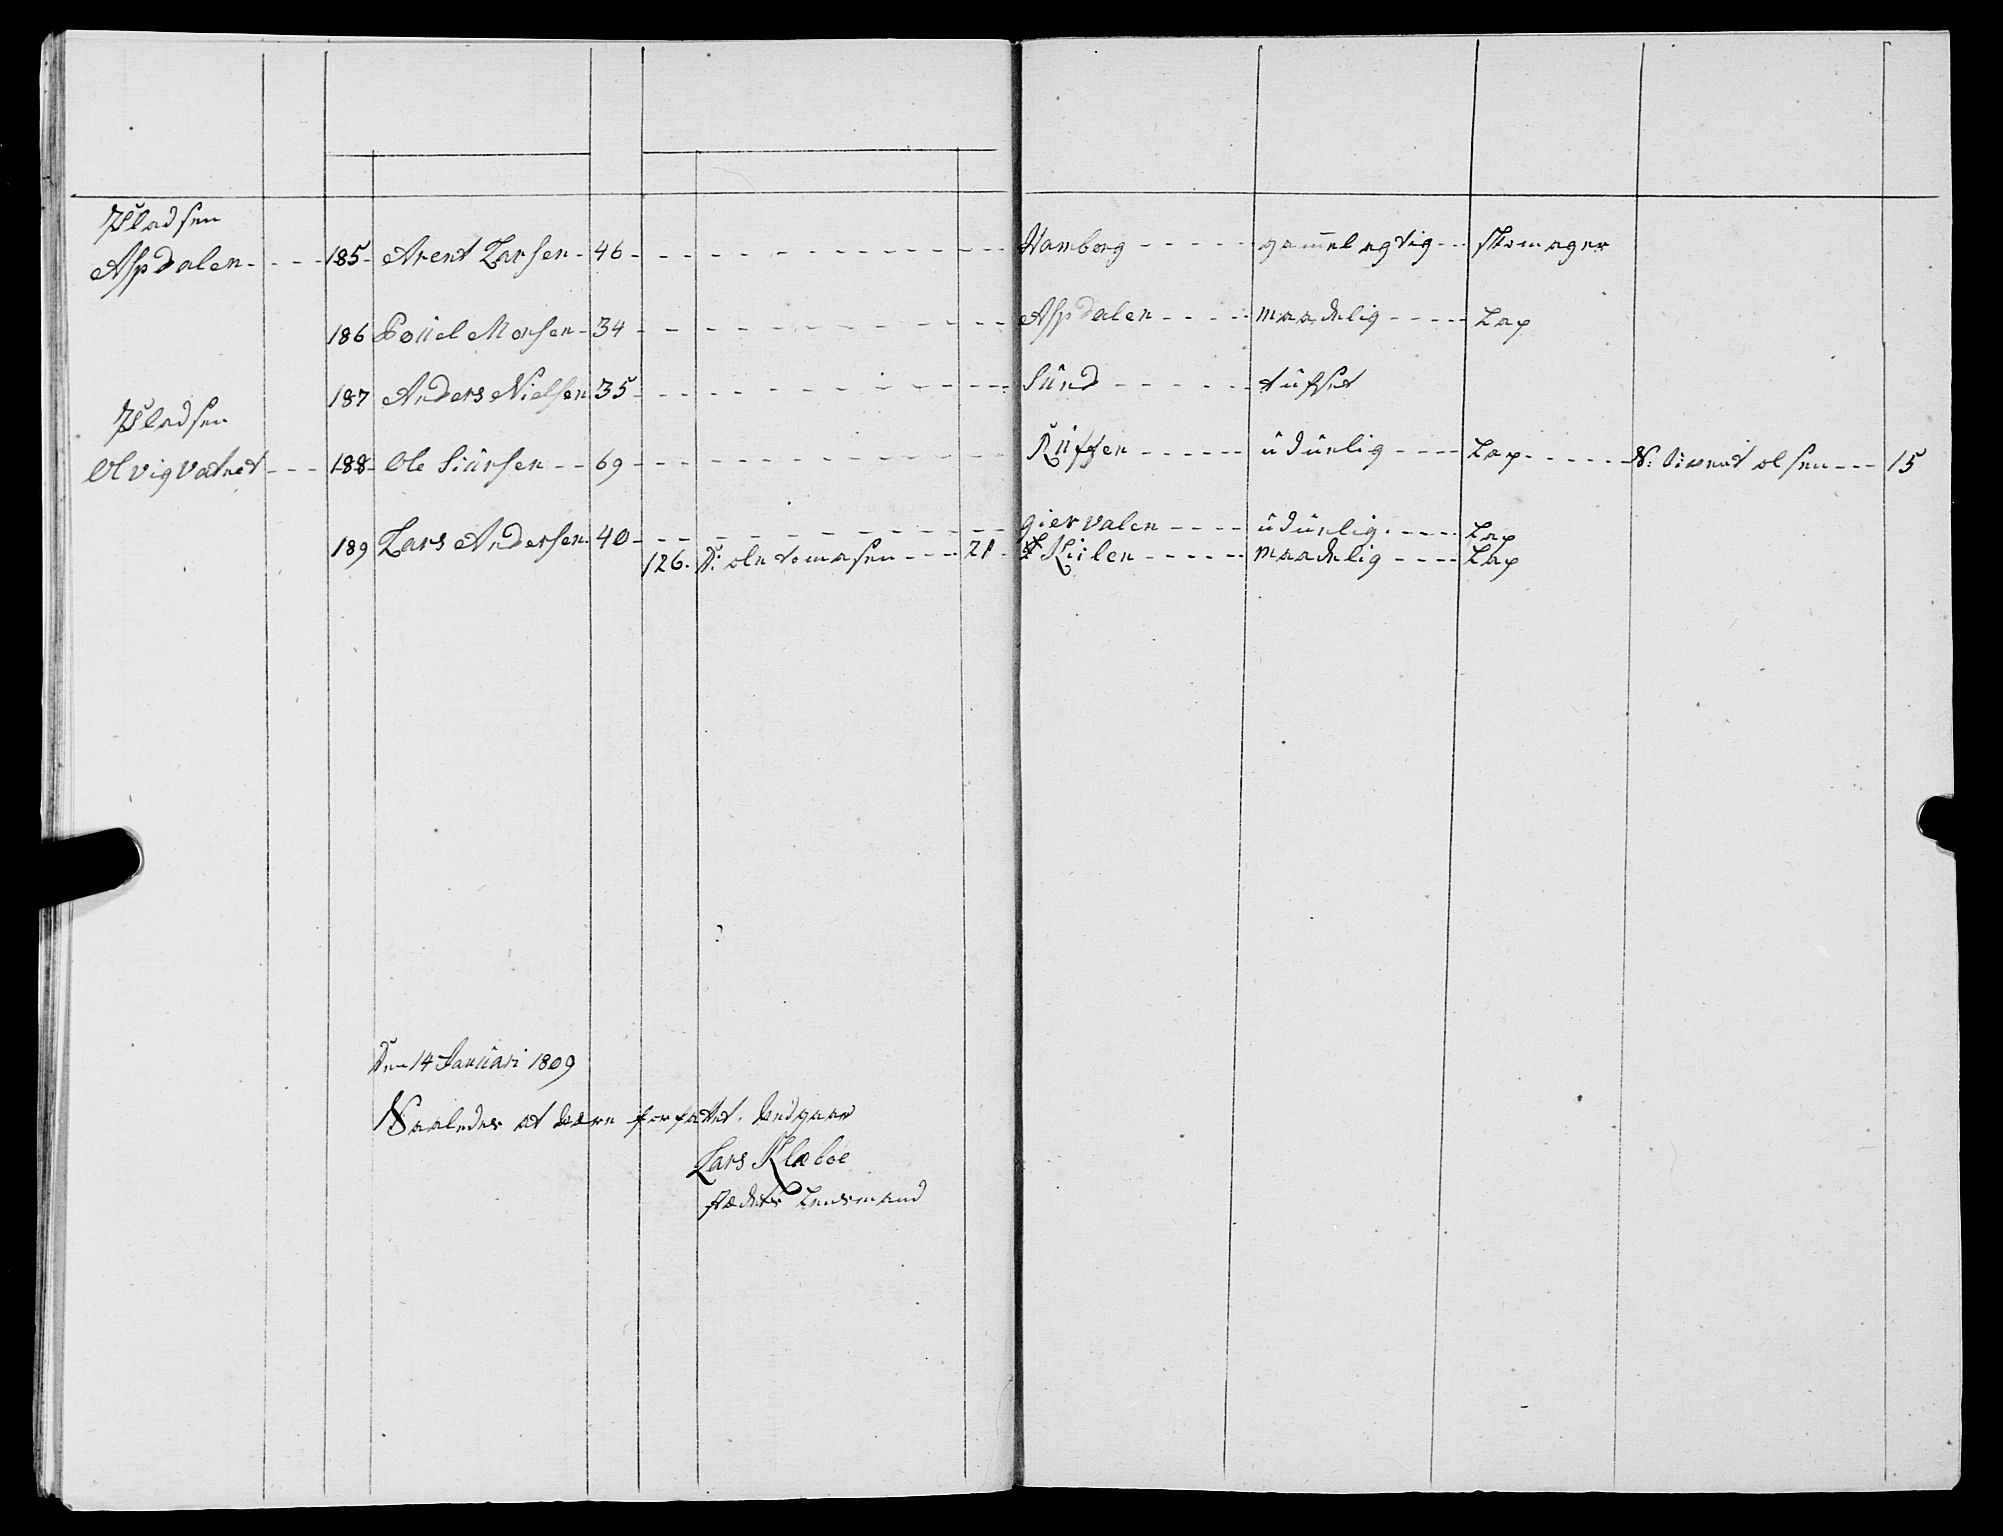 Pladsen
Aspdalen - - - - 185 - Arent Larsen - 46 - - - - - - - - - - Hamborg - - - - - gam̅elagtig - - skomager
186 Poüel Monsen - 34 - - - - - - - - - - Aspdalen - - - - maadelig - - - - Lap
187 Anders Nielsen 35 - - - - - - - - - - Sûnd - - - - - - tûsset
Pladsen
Olvigvatnet - - - 188 - Ole Siûrsen - - 69 - - - - - - - - - - Rüssen - - - - - - ûdûelig - - - - Lap - - - - - - N: Sivert olsen - - - 15
189 Lars Andersen 40 - - - - - - - - - - giervalen - - - - ûdûelig - - - - Lap
126. D: ole tomasen - - - - 21 - Kiilen - - - - - - maadelig - - - - Lap
Den 14 Januari 1809
Saaledes at være forfattet. Vedgaar
Lars Klæboe
stædets Lensmand